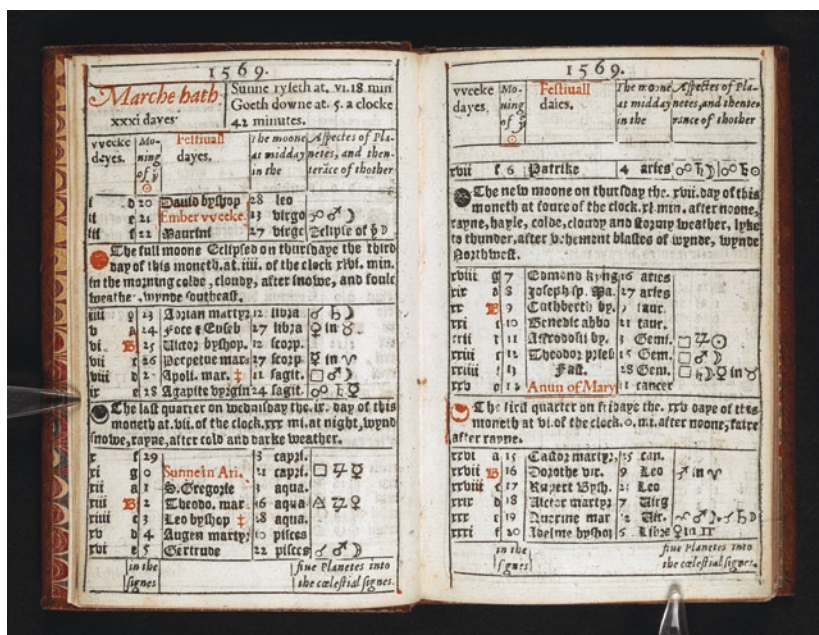 1569.
Marche hath
xxxi dayes·
Sunne ryseth at. vi.18 min
Goeth downe at. 5. a clocke
42 minutes.
vveeke Mo- Festiuall The moone Aspectes of Pla-
dayes. ning dayes. at midday netes, and then-
of ẏ in the terāce of thother
☉
i d 20 Dauid byshop 28 leo
ii e 21 Ember vveeke. 13 virgo ☍ ♂ ☽
iii f 22 Maurini 27 virgo Eclipse of ẏ ☽
The full moone Eclipsed on thursdaye the third
day of this moneth.at.iiii. of the clock xlvi. min.
in the morning colde, cloudy, after snowe, and foule
weather, wynde southeast.
iiii g 23 Adrian martyr 12 libra ☌ ♄ ☽
v a 24 Foce & Euseb 27 libra ♀ in ♉.
vi. B 25 Uictor byshop. 12 scorp.
vii c 26 Perpetue mar: 27 scorp ☿ in ♈
viii d 2- Apoli. mar. ‡ 11 sagit. □ ♂ ☽
ix e 28 Agapite virgin 24 sagit. ☍ ♄ ☿
The last quarter on wednisday the.ix. day of this
moneth at.vii. of the clock.xxx mi.at night, wynd
snowe, rayne, after cold and darke weather.
x f 29 3 capri.
xi g 0 Sunne in Ari. 21 capri. □ ♃ ☿
xii a 1 S. Gregorie 3 aqua.
xiii B 2 Theodo. mar 16 aqua △ ♃ ♀
xiiii c 3 Leo byshop ‡ 28 aqua.
xv d 4 Augen martyr 10 pisces
xvi e 5 Gertrude 22 pisces ☌ ♂ ☽
in the fiue Planetes into
signes the cœlestial signes.
1569.
vveeke Mo- Festiuall The moone Aspectes of Pla-
dayes. ning daies. at midday netes, and thente-
of ẏ in the rance of thother
☉
xvii f 6 Patrike 4 aries ☍ ♄ ☽ ☍ ♄ ☉
The new moone on thursday the. xvii.day of this
moneth at foure of the clock.xl.min. after noone,
rayne, hayle, colde, cloudy and stormy weather, lyke
to thunder, after vehement blastes of wynde, wynde
Northwest.
xviii g 7 Edmond kyng 16 aries
xix a 8 Joseph sp. Ma. 27 aries
xx B 9 Cuthberth by. 9 taur.
xxi c 10 Benedic abbo 21 taur.
xxii 11 Affrodosi by. 3 Gemi. □ ♃ ☉
xxiii 12 Theodor priest 15 Gem. □ ♂ ☽
xxiiii 13 Fast. 28 Gem. □ ♄ ☽ ☿ in ♉
xxv Anun of Mary 11 cancer
The first quarter on fridaye the. xxv daye of this
moneth at vi.of the clock.0. mi.after noone, faire
after rayne.
xxvi a 15 Castor martyr, 25 can.
xxvii B 16 Dorothe vir. 9 Leo ♂ in ♈
xxviii c 17 Rupert Bysh. 21 Leo
xxix d 18 Uictor martyr 7 Uirg
xxx 19 Quirine mar 2 Uir.
xxxi f 20 Adelme byshop 5 Libre ♀ in ♊
in the fiue Planetes into
signes the cœlestial signes.